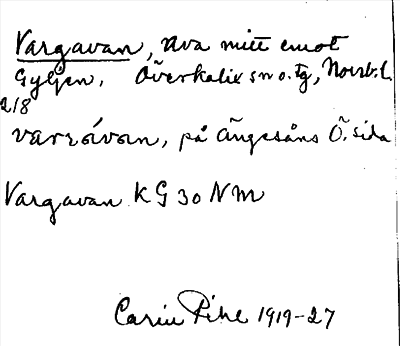 Vargavan, ava mitt emot
Gyljen, Överkalix sn o. tg, Norrb. l.
2/8
varɡávan, på Ängesåns Ö. sida
Vargavan KG 30 NM
Carin Pihl 1919-27